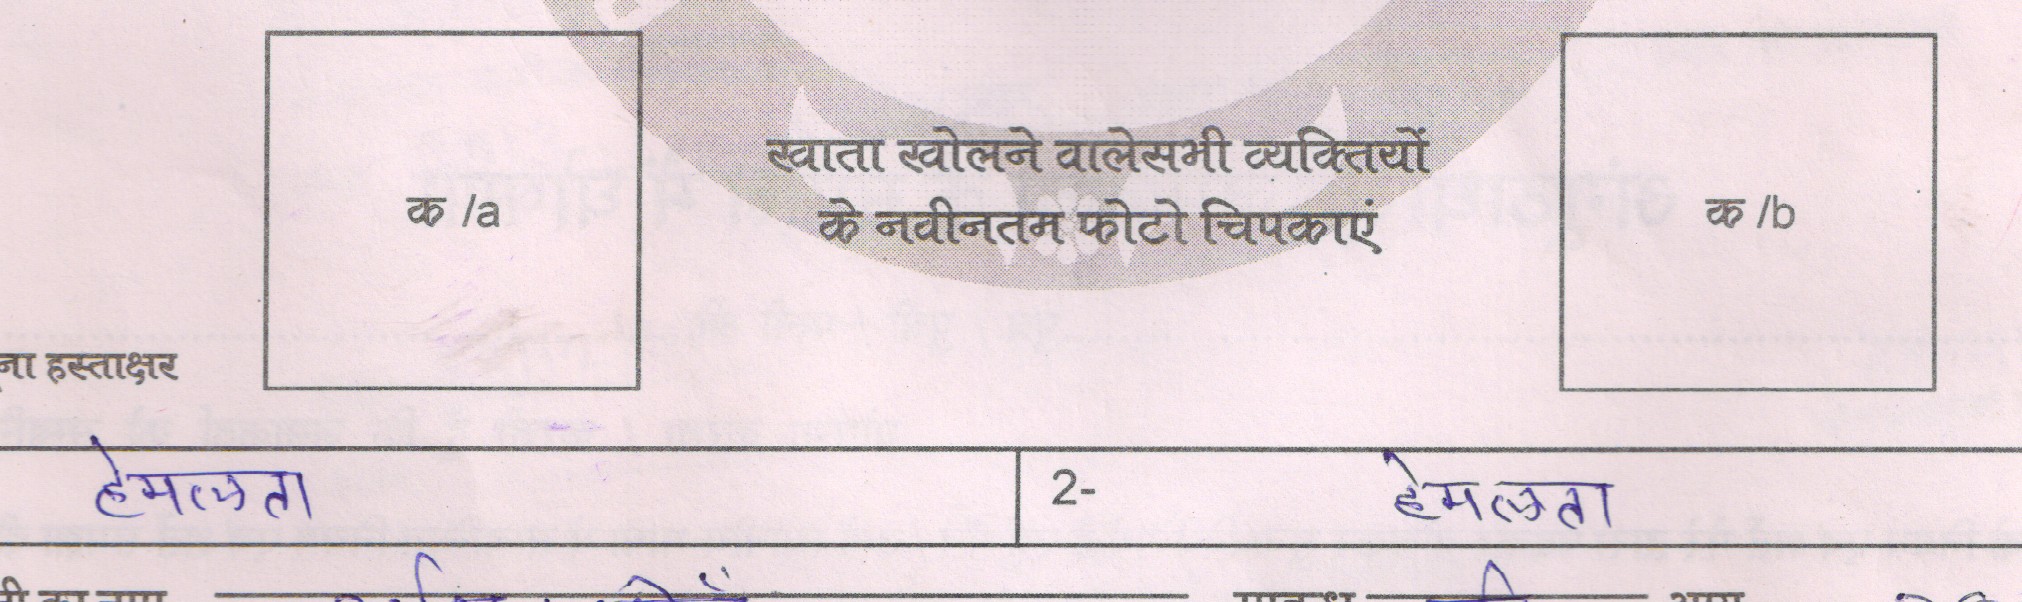 खाता खोलने वालेसभी व्यक्तियों
क /a
के नवीनतम फोटो चिपकाएं
क /b
हस्ताक्षर
हेमलता
2- हेमलता